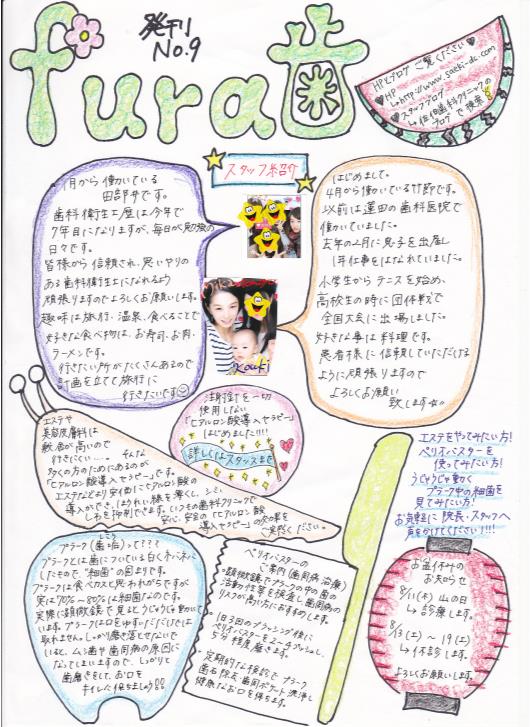 発刊
No.9
fura歯
HPとブログ ご覧ください
♥HP
→http://www.saeki-dc.com
♥スタッフブログ
→佐伯歯科クリニックの
ブログ で検索
スタッフ紹介
1月から働いている
田部井です。
歯科衛生士歴は今年で
7年目になりますが、毎日が勉強の
日々です。
皆様から信頼され、思いやりの
ある歯科衛生士になれるよう
頑張りますのでよろしくお願いします。
趣味は旅行、温泉、食べることで
好きな食べ物は、お寿司、お肉、
ラーメンです。
行きたい所がたくさんあるので
計画を立てて旅行に
行きたいです
はじめまして。
4月から働いている竹節です。
以前は蓮田の歯科医院で
働いていました。
去年の2月に息子を出産し
1年仕事をはなれていました。
小学生から テニスを始め、
高校生の時に団体戦で
全国大会に出場しました。
好きな事は料理です。
患者様に信頼していただける
ように頑張りますので
よろしくお願い
致します
Kouki
注射針を一切
使用しない
「ヒアルロン酸導入セラピー」
はじめました!!!!
詳しくはスタッフまで
エステや
美容皮膚科は
敷居が高いので
行きにくい... そんな
多くの方のためにあるのが
「ヒアルロン酸導入セラピー」です。
エステなどより安価にヒアルロン酸の
導入ができ、ほうれい線を薄くし、シミ、
しわを抑制できます。いつもの歯科クリニックで
安心、安全の「ヒアルロン酸
導入セラピー」の効果を
ご実感ください。
エステをやってみたい方!
ペリオバスターを
使ってみたい方!
うじゅうじゅ動く
プラーク中の細菌を
見てみたい方!
お気軽に院長・スタッフへ
声をかけてください!!!!
プラーク(歯垢)って????
しこう
プラークとは歯についている白くネバネバ
したもので、"細菌"の固まりです。
プラークは食べカスと思われがちですが
実は70%~80%は細菌なのです。
実際に顕微鏡で見るとうじゅうじゅ動いてい
ています。プラークは口をゆすいだだけでは
取れません。しっかり磨き落とせないで
いると、ムシ歯や歯周病の原因に
なってしまいますので、しっかりと
歯磨きをして、お口を
キレイに保ちましょう
ペリオバスターの
ご案内(歯周病治療)
顕微鏡でプラークの中の菌の
活動性等を検査し歯周病の
リスクの高い方におすすめします。
1日3回のブラッシング後に
ペリオバスターを2~4プッシュし、
5分程度磨きます。
定期的な検診でプラーク
歯石除去、歯周ポケット洗浄し
健康なお口を保ちます。
お盆休みの
お知らせ
8/11(木) 山の日
→診療します。
8/13(土)~19(金)
→休診します。
よろしくお願いします。